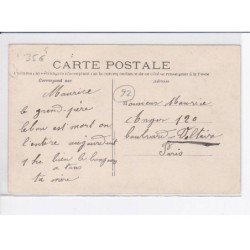 356
CARTE POSTALE
Correspondance
Adresse
92
Maurice
le grand-père
lebau est mort on
l'entere aujourd'hui
1 he bien le
à Paris
ta mère
Monsieur Maurice
Anger 120
boulevard Voltaire
Paris